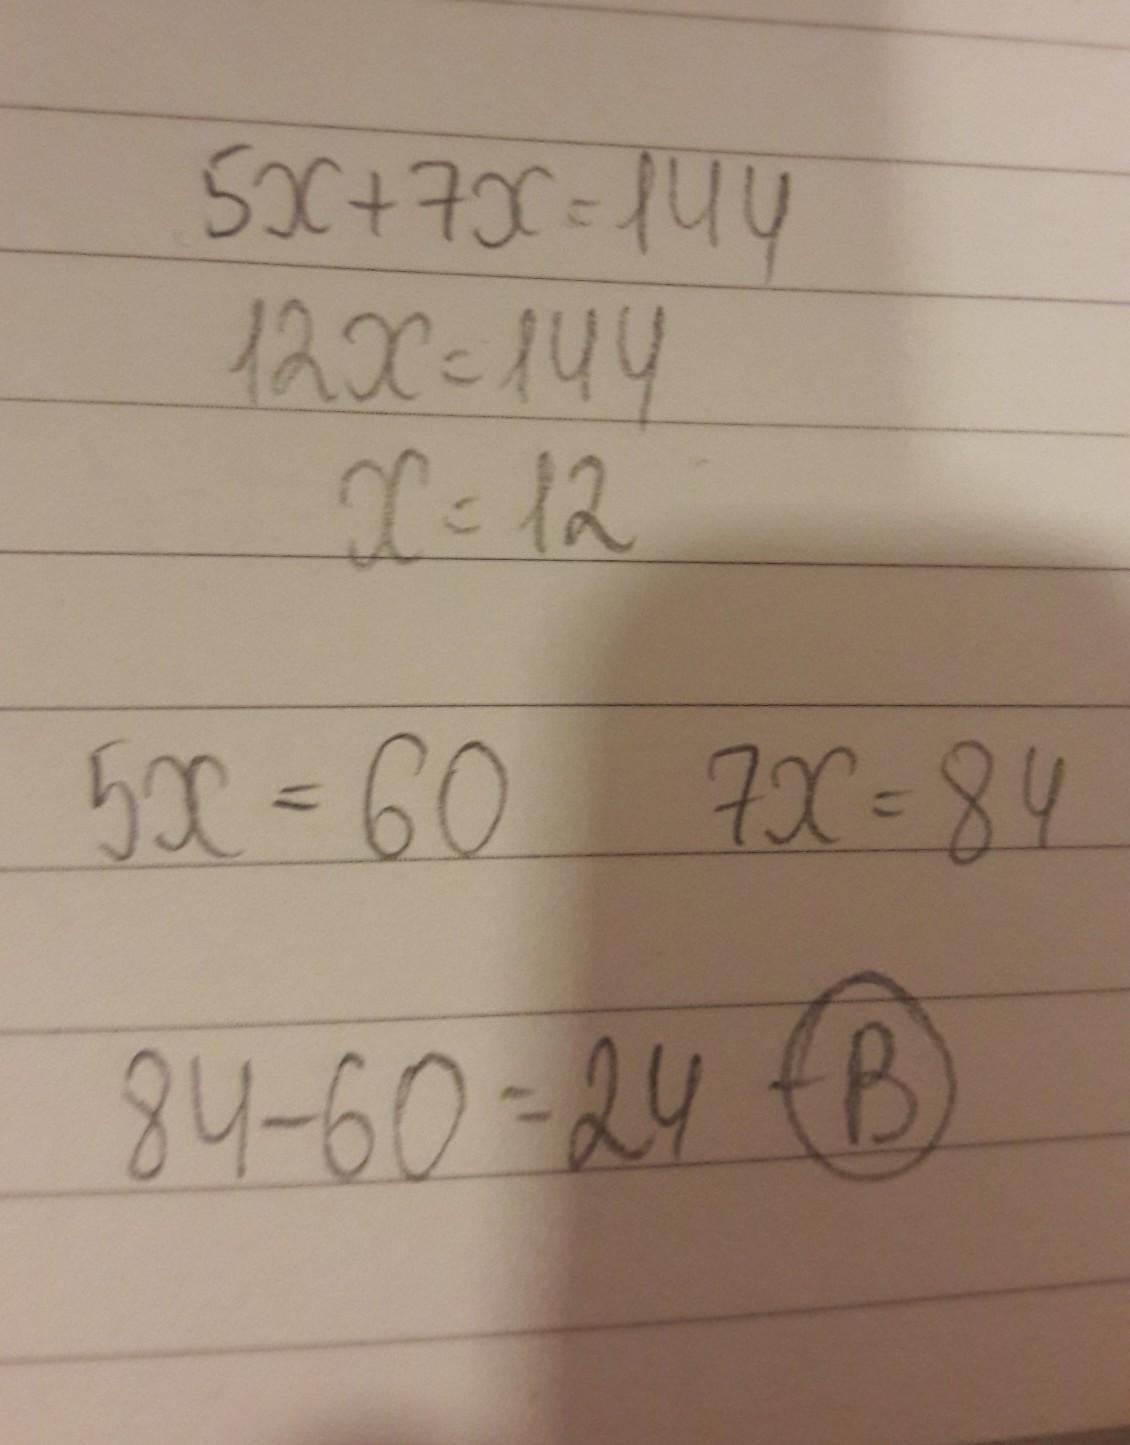 5x+7x=144
12x=144
x=12
5x=60 7x=84
84-60=24 -B